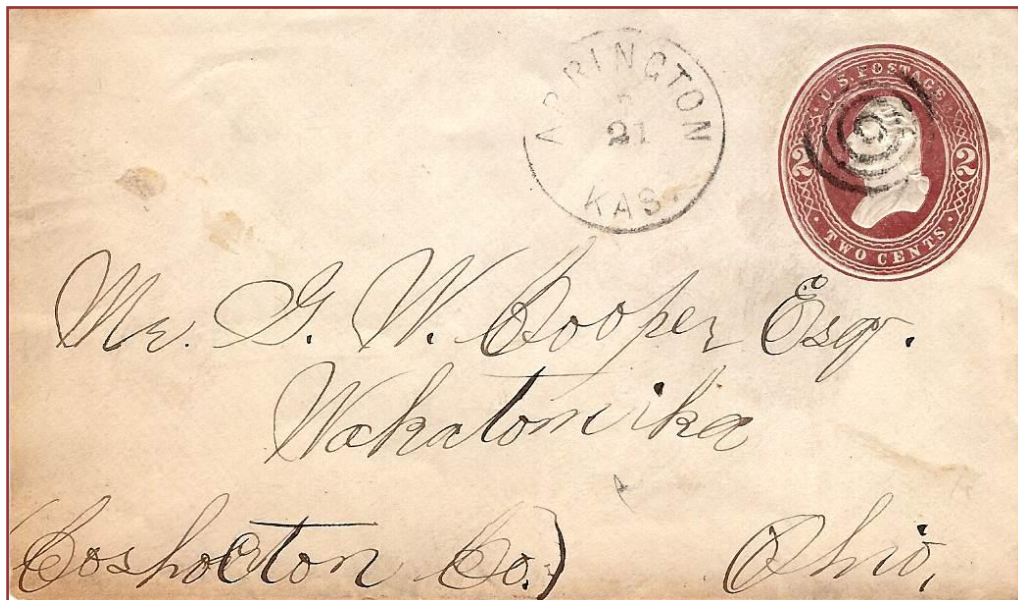 ARRINGTON
21
KAS.
U.S. POSTAGE
2 2
TWO CENTS
Mr. G. W. Cooper Esqr.
Wakatomika
Coshocton Co.) Ohio,